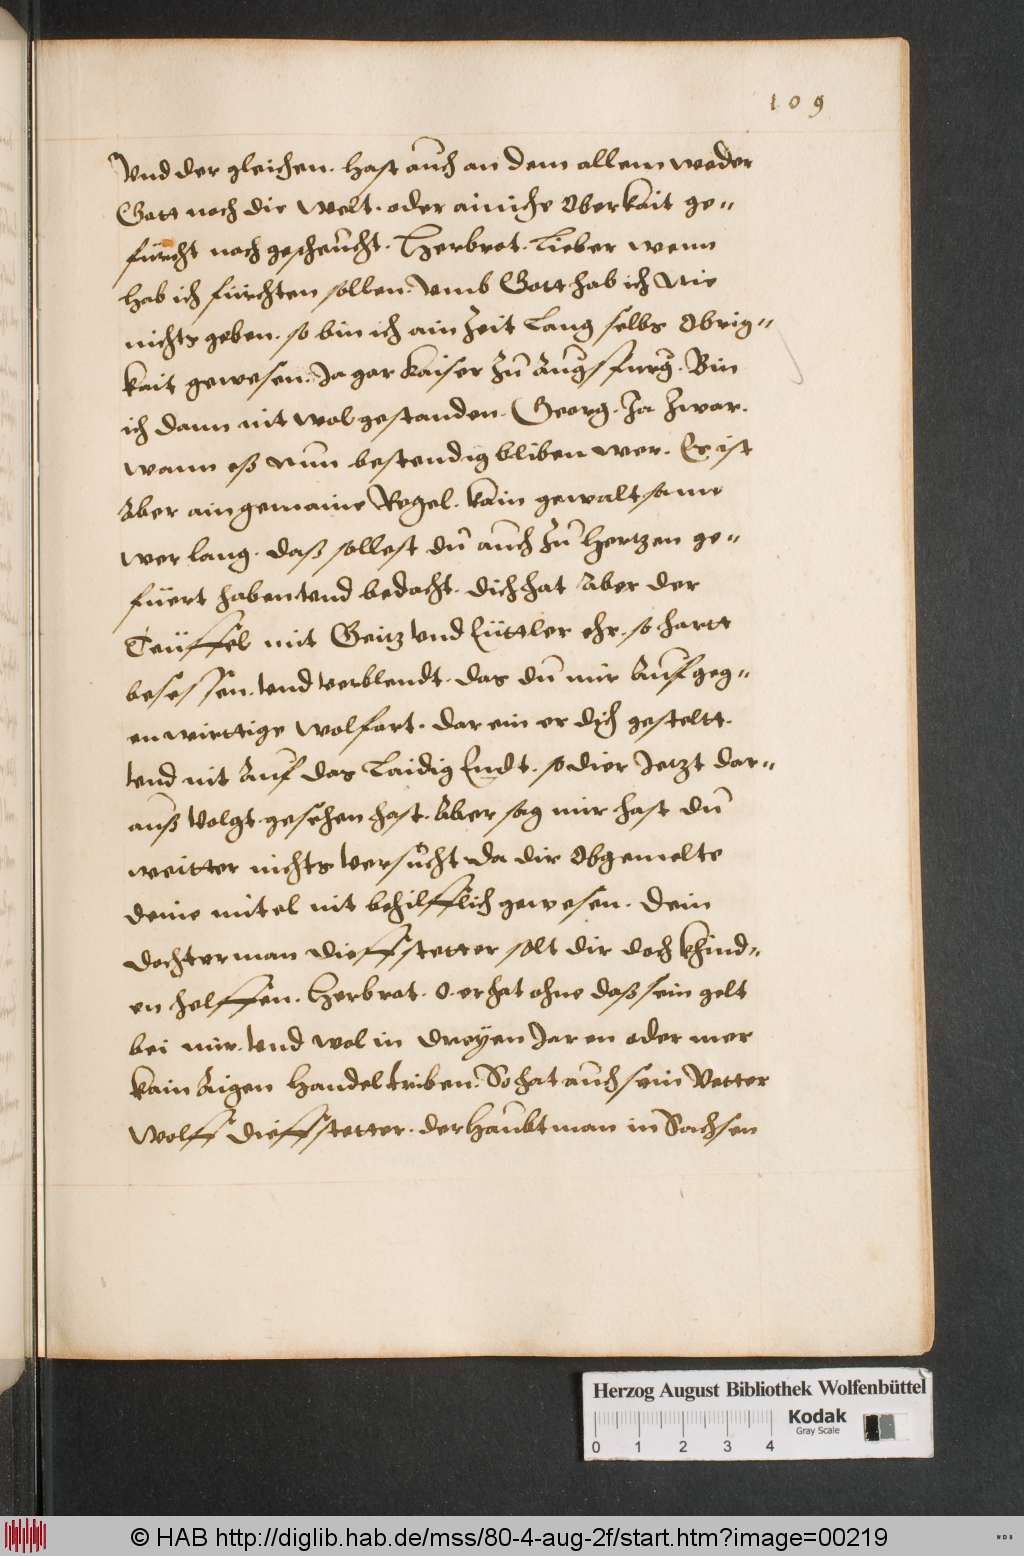 109
Vnd der gleichen. hast auch an dem allem weder
Gott noch die Welt. oder ainiche Oberkait ge=
fürcht noch gescheücht. Herbrot. Lieber wenn
hab ich fürchten sollen. vmb Gott hab ich nie
nichts geben. so bin ich ain Zeit Lang selbs Obrig=
kait gewesen. Ja gar Kaiser Zu Augspurg. Bin
ich dann nit wol gestanden. Georg. Ja Zwar.
wann eß nun bestendig bliben wer. Es ist
Aber ain gemaine Regel. kain gewaltsame
wer lang. daß sollest du auch Zu Hertzen ge=
füert haben vnd bedacht. dich hat Aber der
Teüffel mit Geitz vnd Eüttler ehr. so hartt
besessen. vnd verblendt. das du nur Auf geg=
enwirttige wolfart. dar ein er dich gestelt.
vnd nit Auf das Laidig Endt. so dier Jetzt dar=
auß volgt gesehen hast. Aber sag mir hast du
weitter nichts versucht da dir Obgemelte
deine mitel nit behilfflich gewesen. Dein
dochterman dieffstetter solt dir doch khind=
en helffen. Herbrot. O. er hat ohne daß sein gelt
bei mir. vnd wol in dreyen Jaren oder mer
kain Aigen Handel triben. So hat auch sein Vetter
Wolff dieffstetter. der Haubtman in Sachsen
Herzog August Bibliothek Wolfenbüttel
Kodak
Gray Scale
0 1 2 3 4
© HAB http://diglib.hab.de/mss/80-4-aug-2f/start.htm?image=00219